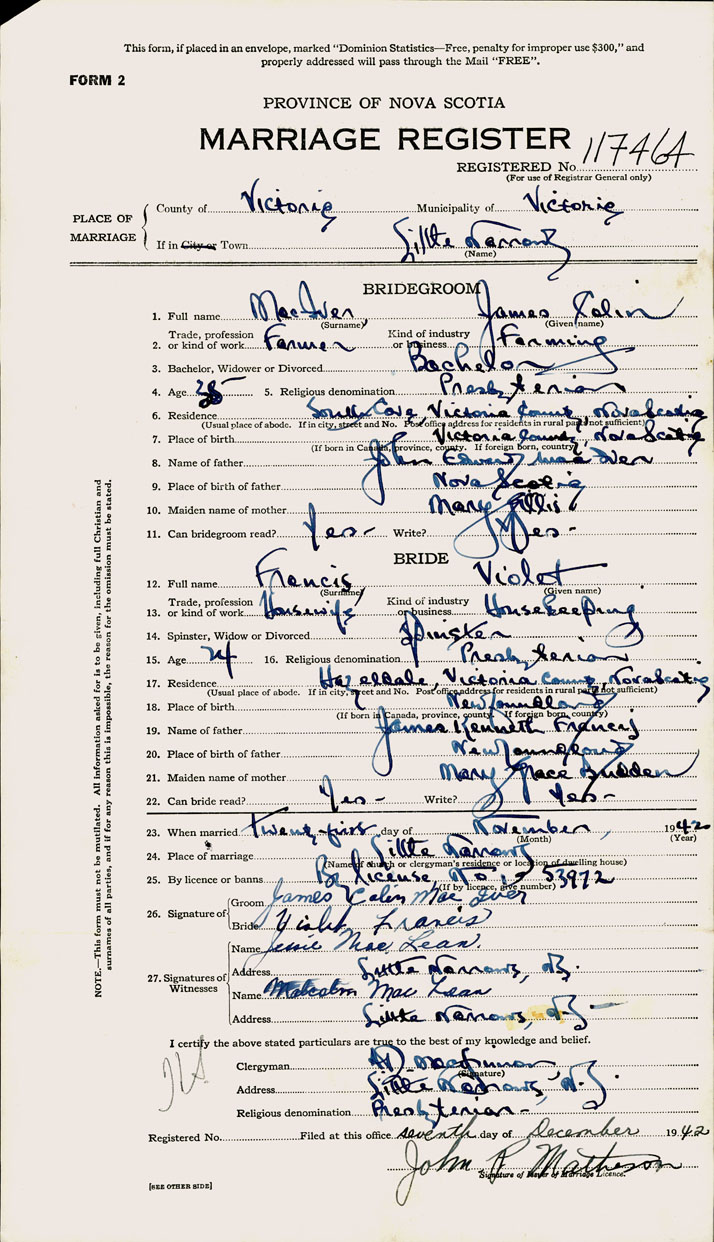 This form, if placed in an envelope, marked "Dominion Statistics—Free, penalty for improper use $300," and
properly addressed will pass through the Mail "FREE".
FORM 2
PROVINCE OF NOVA SCOTIA
MARRIAGE REGISTER
REGISTERED No. 117464
(For use of Registrar General only)
PLACE OF MARRIAGE
County of Victoria Municipality of Victoria
If in City or Town Little Narrows
(Name)
BRIDEGROOM
1. Full name MacIver James Colin
(Surname) (Given name)
2. Trade, profession or kind of work Farmer Kind of industry or business Farming
3. Bachelor, Widower or Divorced Bachelor
4. Age 5. Religious denomination Presbyterian
6. Residence South Cove, Victoria County, Nova Scotia
(Usual place of abode. If in city, street and No. Post office address for residents in rural parts not sufficient)
7. Place of birth Victoria County, Nova Scotia
(If born in Canada, province, county. If foreign born, country)
8. Name of father John Edward MacIver
9. Place of birth of father Nova Scotia
10. Maiden name of mother Mary Gillis
11. Can bridegroom read? Yes- Write? Yes-
BRIDE
12. Full name Francis Violet
(Surname) (Given name)
13. Trade, profession or kind of work Housewife Kind of industry or business Housekeeping
14. Spinster, Widow or Divorced Spinster
15. Age 24 16. Religious denomination Presbyterian
17. Residence Hazeldale, Victoria County, Nova Scotia
(Usual place of abode. If in city, street and No. Post office address for residents in rural parts not sufficient)
18. Place of birth Newfoundland
(If born in Canada, province, county. If foreign born, country)
19. Name of father James Kenneth Francis
20. Place of birth of father Newfoundland
21. Maiden name of mother Mary Grace Budden
22. Can bride read? Yes- Write? Yes-
23. When married Twenty-first day of November, 1942
(Month) (Year)
24. Place of marriage Little Narrows
(Name of church or clergyman's residence or location of dwelling house)
25. By licence or banns By license No. 53972
(If by licence, give number)
26. Signature of
Groom James Colin MacIver
Bride Violet Francis
27. Signatures of Witnesses
Name Jessie MacLean.
Address Little Narrows, N.S.
Name Malcolm MacLean
Address Little Narrows, N.S.
I certify the above stated particulars are true to the best of my knowledge and belief.
Clergyman
(Signature)
Address Little Narrows, N.S.
Religious denomination Presbyterian-
Registered No. Filed at this office seventh day of December 1942
John P Matheson
Signature of Issuer of Marriage Licence.
[SEE OTHER SIDE]
NOTE.—This form must not be mutilated. All information asked for is to be given, including full Christian and
surnames of all parties, and if for any reason this is impossible, the reason for the omission must be stated.